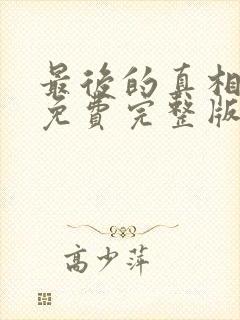 最後的真相
免費完整版
高少萍